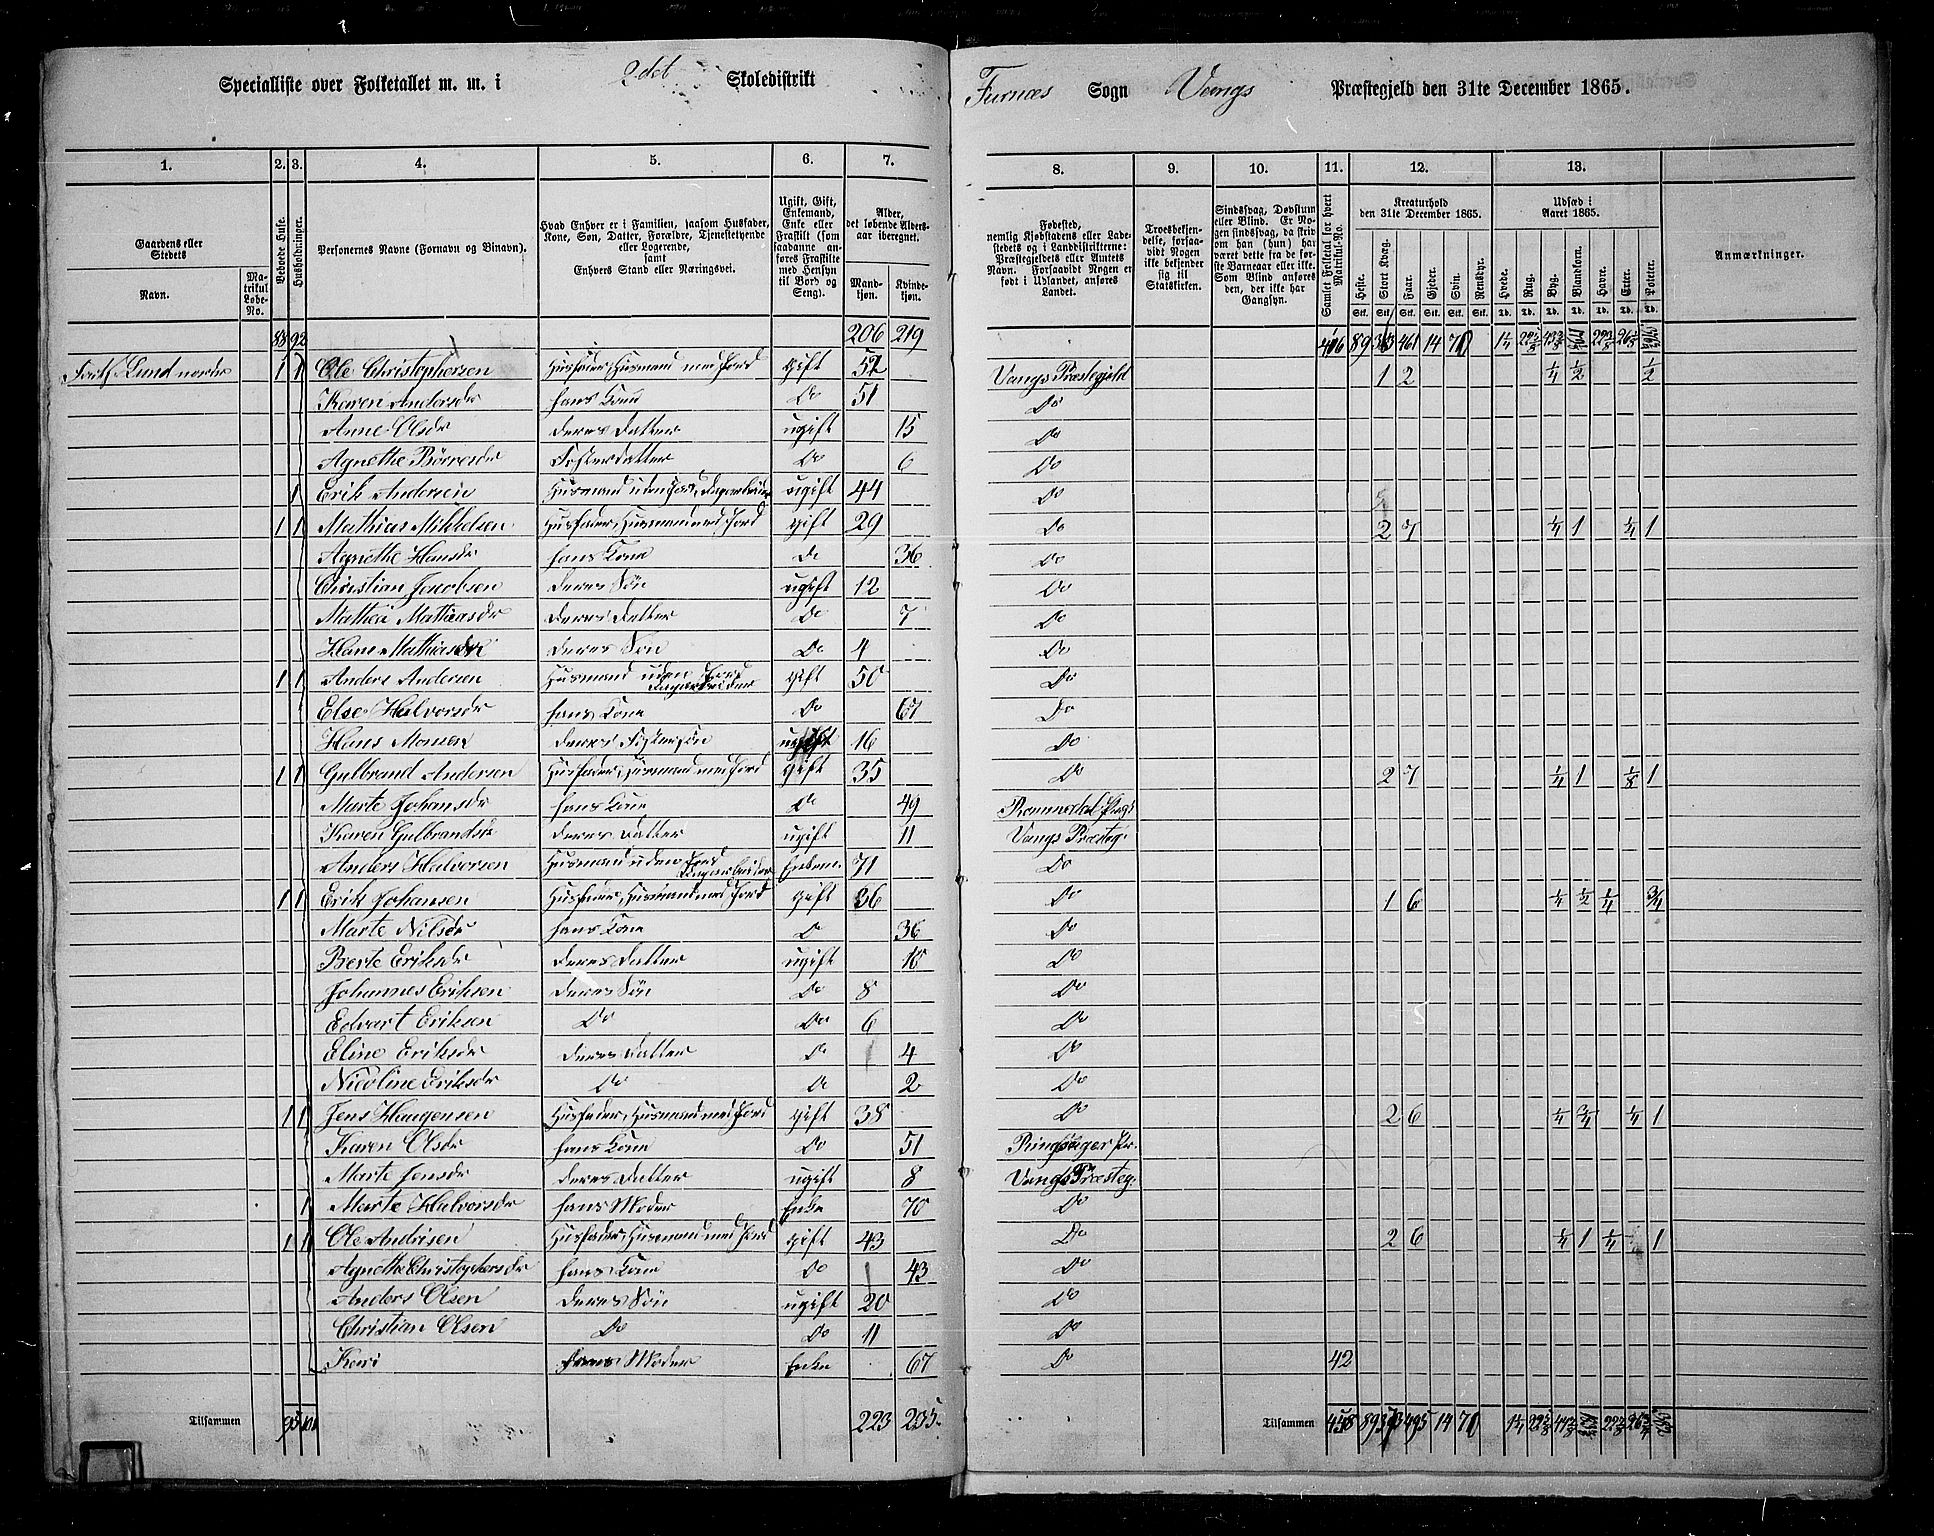 Specialliste over Folketallet m. m. i 2det Skoledistrikt Furnæs Sogn Vangs Præstegjeld den 31te December 1865.
1. 2. 3. 4. 5. 6. 7. 8. 9. 10. 11. 12. 13.
Gaardens eller Stedets
Navn.
Matrikul Løbe-No.
Beboede Huse.
Husholdninger.
Personernes Navne (Fornavn og Binavn).
Hvad Enhver er i Familien, saasom Husfader, Kone, Søn, Datter, Forældre, Tjenestetyende eller Logerende, samt Enhvers Stand eller Næringsvei.
Ugift, Gift, Enkemand, Enke eller Fraskilt (som saadanne anføres Fraskilte med Hensyn til Bord og Seng).
Alder, det løbende Aldersaar iberegnet.
Mandkjøn. Kvindekjøn.
Fødested, nemlig Kjøbstadens eller Ladestedets og i Landdistrikterne: Præstegjeldets eller Amtets Navn. Forsaavidt Nogen er født i Udlandet, anføres Landet.
Troesbekjendelse, forsaavidt Nogen ikke bekjender sig til Statskirken.
Sindssvag, Døvstum eller Blind. Er Nogen sindssvag, da skrives om han (hun) har været dette fra de første Barneaar eller ikke. Som Blind anføres den, der ikke har Gangsyn.
Samlet Folketal for hvert Matrikul-No.
Kreaturhold den 31te December 1865.
Heste. Stort Kvæg. Faar. Gjeder. Svin. Rensdyr.
Udsæd i Aaret 1865.
Hvede. Rug. Byg. Blandkorn. Havre. Erter. Poteter.
Anmærkninger.
88 92 206 219 416 89 363 461 14 70
Lund nordre 1 1 Ole Christophersen Husfader, Husmand med Jord gift 52 Vangs Præstegjeld 1 2 1/4 1/2 1/2
Karen Andersdr hans Kone Do 51 Do
Anne Olsdr deres Datter ugift 15 Do
Agnethe Börresdr Fosterdatter Do 6 Do
1 Erik Andersen Husmand uden Jord, Dagarbeider ugift 44 Do
1 1 Mathias Mikkelsen Husfader, Husmand med Jord gift 29 Do 2 7 1/4 1 1/4 1
Agnethe Hansdr hans Kone Do 36 Do
Christian Jacobsen deres Søn ugift 12 Do
Mathea Mathiasdr deres Datter Do 7 Do
Hans Mathiasen deres Søn Do 4 Do
1 1 Anders Andersen Husmand uden Jord Dagarbeider gift 50 Do
Else Halvorsdr hans Kone Do 67 Do
Hans Monsen deres Fostersøn ugift 16 Do
1 1 Gulbrand Andersen Husfader, Husmand med Jord gift 35 Do 2 7 1/4 1 1/8 1
Marte Johansdr hans Kone Do 49 Romsdal Prægj
Karen Gulbrandsdr deres Datter ugift 11 Vangs Præsteg.
Anders Halvorsen Husmand uden Jord Dagarbeider Enkem. 71 Do
1 1 Erik Johansen Husfader, Husmand med Jord gift 36 Do 1 6 1/4 1/2 1/4 3/4
Marte Nilsdr hans Kone Do 36 Do
Berte Eriksdr deres Datter ugift 10 Do
Johannes Eriksen deres Søn Do 8 Do
Edvart Eriksen Do Do 6 Do
Eline Eriksdr deres Datter Do 4 Do
Nicoline Eriksdr Do Do 2 Do
1 1 Jens Haagensen Husfader, Husmand med Jord gift 38 Do 2 6 1/4 3/4 1/4 1
Karen Olsdr hans Kone Do 51 Ringsager Pr.
Marte Jensdr deres Datter ugift 8 Vangs Præsteg.
1 Marte Halvorsdr hans Moder Enke 70 Do
1 1 Ole Andersen Husfader, Husmand med Jord gift 43 Do 2 6 1/4 1 1/4 1
Agnethe Christophersdr hans Kone Do 43 Do
Anders Olsen deres Søn ugift 20 Do
Christian Olsen Do Do 11 Do
Kari hans Moder Enke 67 Do 42
Tilsammen 95 101 223 235 Tilsammen 458 89 373 495 14 70